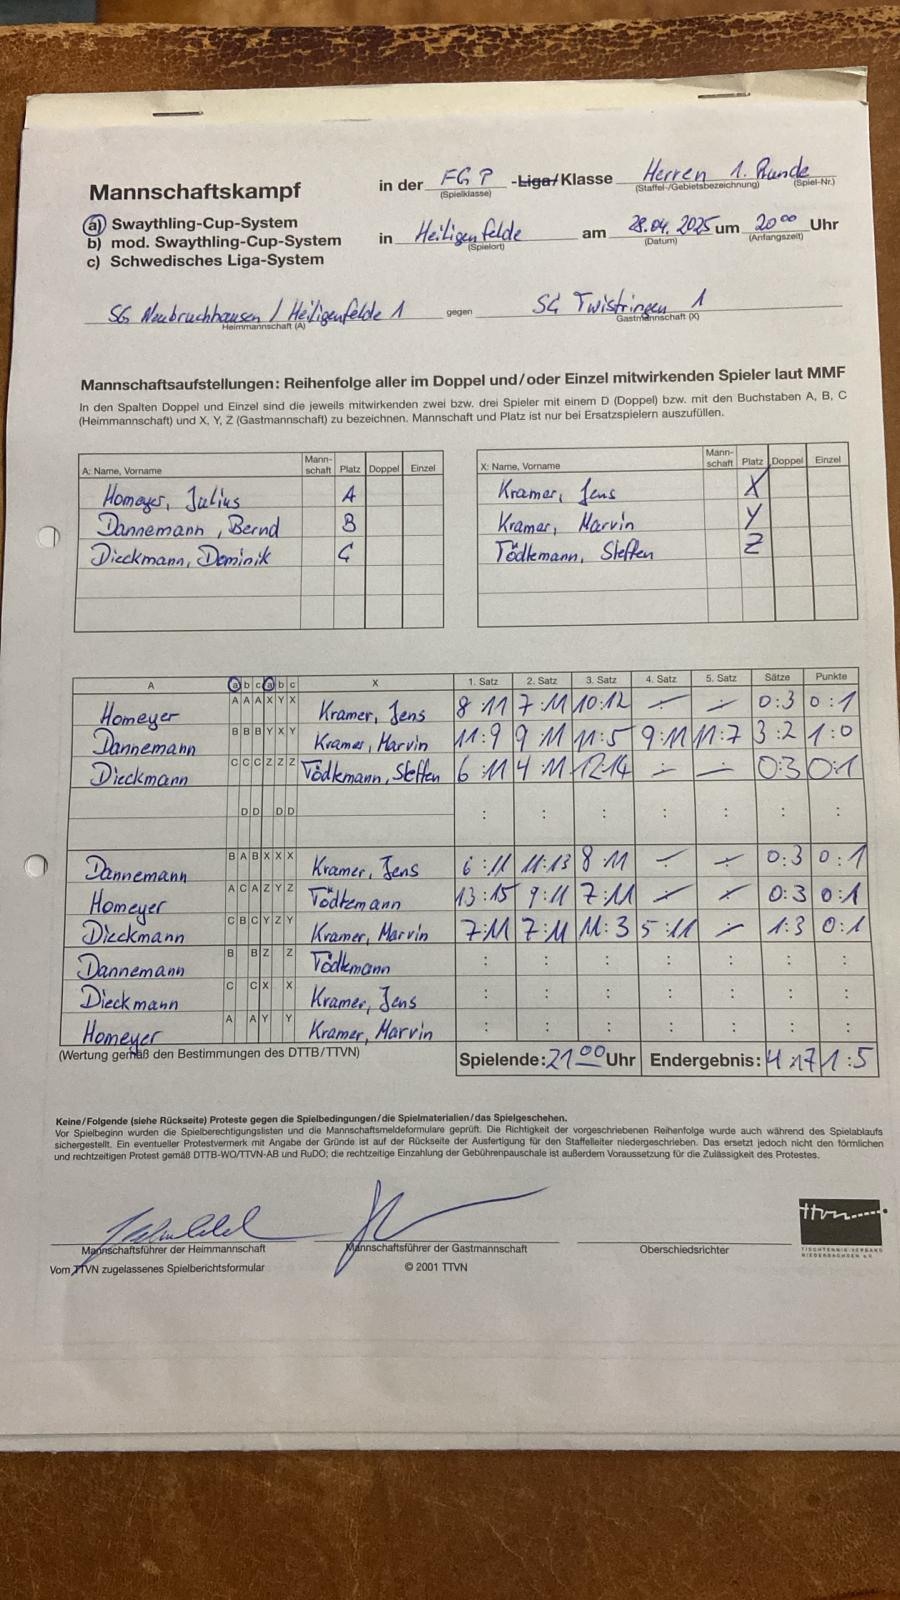 Mannschaftskampf
in der FGP -Liga/Klasse Herren 1. Runde
(Spielklasse) (Staffel-/Gebietsbezeichnung) (Spiel-Nr.)
a) Swaythling-Cup-System
b) mod. Swaythling-Cup-System
c) Schwedisches Liga-System
in Heiligenfelde am 28.04.2025 um 20 00 Uhr
(Spielort) (Datum) (Anfangszeit)
SG Neubruchhausen / Heiligenfelde 1 gegen SG Twistringen 1
Heimmannschaft (A) Gastmannschaft (X)
Mannschaftsaufstellungen: Reihenfolge aller im Doppel und/oder Einzel mitwirkenden Spieler laut MMF
In den Spalten Doppel und Einzel sind die jeweils mitwirkenden zwei bzw. drei Spieler mit einem D (Doppel) bzw. mit den Buchstaben A, B, C
(Heimmannschaft) und X, Y, Z (Gastmannschaft) zu bezeichnen. Mannschaft und Platz ist nur bei Ersatzspielern auszufüllen.
A: Name, Vorname Mann-schaft Platz Doppel Einzel
Homeyer, Julius A
Dannemann, Bernd B
Dieckmann, Dominik C
X: Name, Vorname Mann-schaft Platz Doppel Einzel
Kramer, Jens X
Kramer, Marvin Y
Tödtemann, Steffen Z
A a b c a b c X 1. Satz 2. Satz 3. Satz 4. Satz 5. Satz Sätze Punkte
Homeyer A A A X Y X Kramer, Jens 8 11 7 11 10:12 0:3 0:1
Dannemann B B B Y X Y Kramer, Marvin 11:9 9 11 11:5 9:11 11:7 3:2 1:0
Dieckmann C C C Z Z Z Tödtemann, Steffen 6 11 4 11 12:14 0:3 0:1
D D D D : : : : : : :
Dannemann B A B X X X Kramer, Jens 6:11 11:13 8 11 0:3 0:1
Homeyer A C A Z Y Z Tödtemann 13:15 9:11 7:11 0:3 0:1
Dieckmann C B C Y Z Y Kramer, Marvin 7:11 7:11 11:3 5:11 1:3 0:1
Dannemann B B Z Z Tödtemann : : : : : : :
Dieckmann C C X X Kramer, Jens : : : : : : :
Homeyer A A Y Y Kramer, Marvin : : : : : : :
(Wertung gemäß den Bestimmungen des DTTB/TTVN) Spielende: 21 00 Uhr Endergebnis: 4:17 1:5
Keine/Folgende (siehe Rückseite) Proteste gegen die Spielbedingungen/die Spielmaterialien/das Spielgeschehen.
Vor Spielbeginn wurden die Spielberechtigungslisten und die Mannschaftsmeldeformulare geprüft. Die Richtigkeit der vorgeschriebenen Reihenfolge wurde auch während des Spielablaufs
sichergestellt. Ein eventueller Protestvermerk mit Angabe der Gründe ist auf der Rückseite der Ausfertigung für den Staffelleiter niedergeschrieben. Das ersetzt jedoch nicht den förmlichen
und rechtzeitigen Protest gemäß DTTB-WO/TTVN-AB und RuDO; die rechtzeitige Einzahlung der Gebührenpauschale ist außerdem Voraussetzung für die Zulässigkeit des Protestes.
ttvn
TISCHTENNIS-VERBAND
NIEDERSACHSEN e.V.
Mannschaftsführer der Heimmannschaft Mannschaftsführer der Gastmannschaft Oberschiedsrichter
Vom TTVN zugelassenes Spielberichtsformular © 2001 TTVN